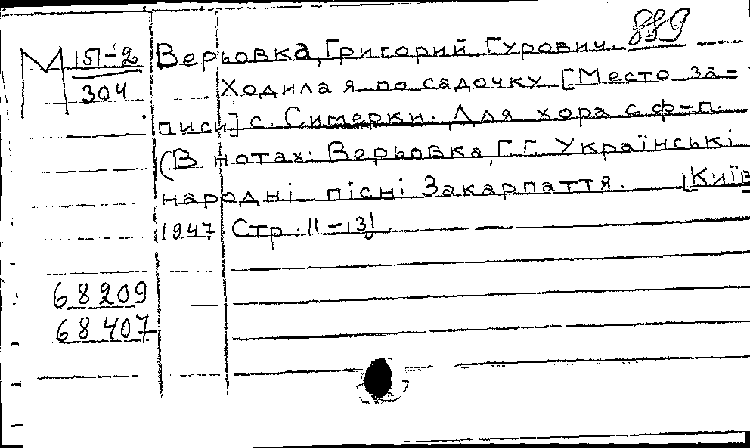 859
М 15-2 Верьовка, Григорий Гурович.
304 Ходила я по садочку [Место за=
писи] с. Симерки. Для хора с ф-п.
(В нотах: Верьовка, Г.Г. Українські
народні пісні Закарпаття. [Київ
1947 Стр. 11-13]
68209
68407